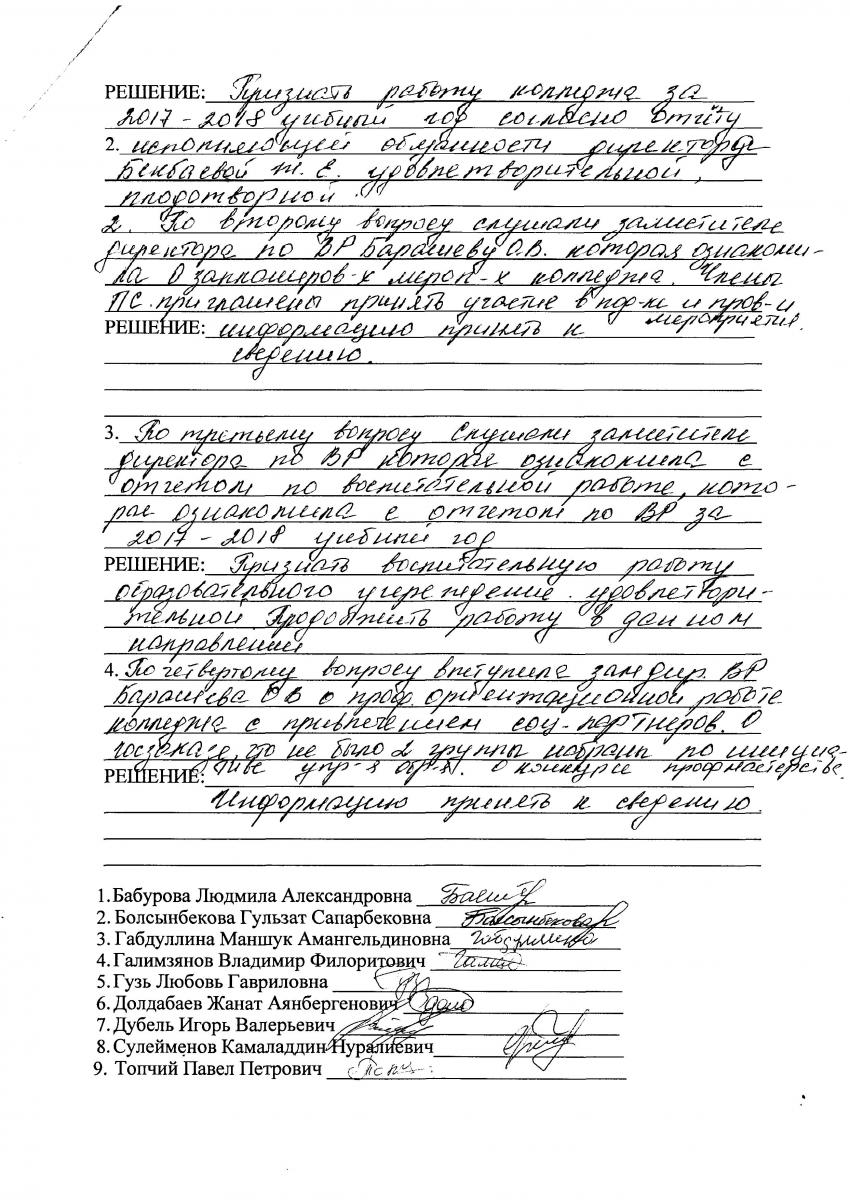 РЕШЕНИЕ: Признать работу колледжа за
2017-2018 учебный год согласно отчёту
2. исполняющей обязанности директора
Бекбаевой Ж. Е. удовлетворительной,
плодотворной.
2. По второму вопросу слушали заместителе
директора по ВР Барашеву О.В. которая ознакоми-
ла о запланиров-х мероп-х колледжа. Члены
ПС приглашены принять участие в под-ки и пров-и
мероприятия.
РЕШЕНИЕ: информацию принять к
сведению.
3. По третьему вопросу слушали заместителе
директора по ВР которая ознакомила с
отчетом по воспитательной работе, кото-
рае ознакомила с отчетом по ВР за
2017-2018 учебный год
РЕШЕНИЕ: Признать воспитательную работу
образовательного учереждение удовлетвори-
тельной. Продолжить работу в данном
направлении
4. По четвертому вопросу выступила зам дир. ВР
Барашева ОВ о проф. ориентационной работе
колледжа с привлечением соц-партнеров. О
госзаказе, что не было 2 группы набраны по инициа-
тиве упр-я обр-я. О конкурсе профмастерства.
РЕШЕНИЕ:
Информацию принять к сведению.
1. Бабурова Людмила Александровна
2. Болсынбекова Гульзат Сапарбековна Болсынбекова
3. Габдуллина Маншук Амангельдиновна Габдуллина
4. Галимзянов Владимир Филоритович
5. Гузь Любовь Гавриловна
6. Долдабаев Жанат Аянбергенович
7. Дубель Игорь Валерьевич
8. Сулейменов Камаладдин Нуралиевич
9. Топчий Павел Петрович